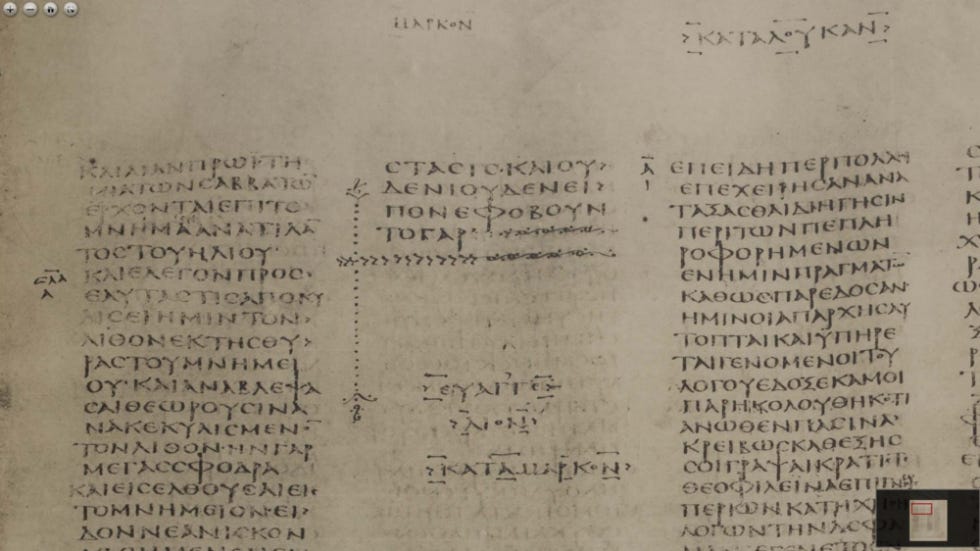 ΜΑΡΚΟΝ
ΚΑΤΑΛΟΥΚΑΝ
ΚΑΙΛΙΑΝΠΡΩΪΤΗ
ΜΙΑΤΩΝϹΑΒΒΑΤΩ
ΕΡΧΟΝΤΑΙΕΠΙΤΟ
ΜΝΗΜΑΑΝΑΤΙΛΑ
ΤΟϹΤΟΥΗΛΙΟΥ·
ΚΑΙΕΛΕΓΟΝΠΡΟϹ
ΕΑΥΤΑϹΤΙϹΑΠΟΚΥ
ΛΙϹΕΙΗΜΙΝΤΟΝ
ΛΙΘΟΝΕΚΤΗϹΘΥ
ΡΑϹΤΟΥΜΝΗΜΕΙ
ΟΥ·ΚΑΙΑΝΑΒΛΕΨΑ
ϹΑΙΘΕΩΡΟΥϹΙΝΑ
ΝΑΚΕΚΥΛΙϹΜΕΝ
ΤΟΝΛΙΘΟΝ·ΗΝΓΑΡ
ΜΕΓΑϹϹΦΟΔΡΑ
ΚΑΙΕΙϹΕΛΘΟΥϹΑΙΕΙϹ
ΤΟΜΝΗΜΕΙΟΝ·ΕΙ
ΔΟΝΝΕΑΝΙϹΚΟΝ
ϹΤΑϹΙϹ·ΚΑΙΟΥ
ΔΕΝΙΟΥΔΕΝΕΙ
ΠΟΝΕΦΟΒΟΥΝ
ΤΟΓΑΡ
ΕΥΑΓΓΕ
ΛΙΟΝ
ΚΑΤΑΜΑΡΚΟΝ
ΕΠΕΙΔΗΠΕΡΠΟΛΛΟΙ
ΕΠΕΧΕΙΡΗϹΑΝΑΝΑ
ΤΑΞΑϹΘΑΙΔΙΗΓΗϹΙΝ
ΠΕΡΙΤΩΝΠΕΠΛΗ
ΡΟΦΟΡΗΜΕΝΩΝ
ΕΝΗΜΙΝΠΡΑΓΜΑΤΩ
ΚΑΘΩϹΠΑΡΕΔΟϹΑΝ
ΗΜΙΝΟΙΑΠΑΡΧΗϹΑΥ
ΤΟΠΤΑΙΚΑΙΥΠΗΡΕ
ΤΑΙΓΕΝΟΜΕΝΟΙΤΟΥ
ΛΟΓΟΥΕΔΟΞΕΚΑΜΟΙ
ΠΑΡΗΚΟΛΟΥΘΗΚΟΤΙ
ΑΝΩΘΕΝΠΑϹΙΝΑ
ΚΡΕΙΒΩϹΚΑΘΕΞΗϹ
ϹΟΙΓΡΑΨΑΙΚΡΑΤΙϹΤΕ
ΘΕΟΦΙΛΕΙΝΑΕΠΙΓΝΩϹ
ΠΕΡΙΩΝΚΑΤΗΧΗΘΗϹ
ΛΟΓΩΝΤΗΝΑϹΦΑ